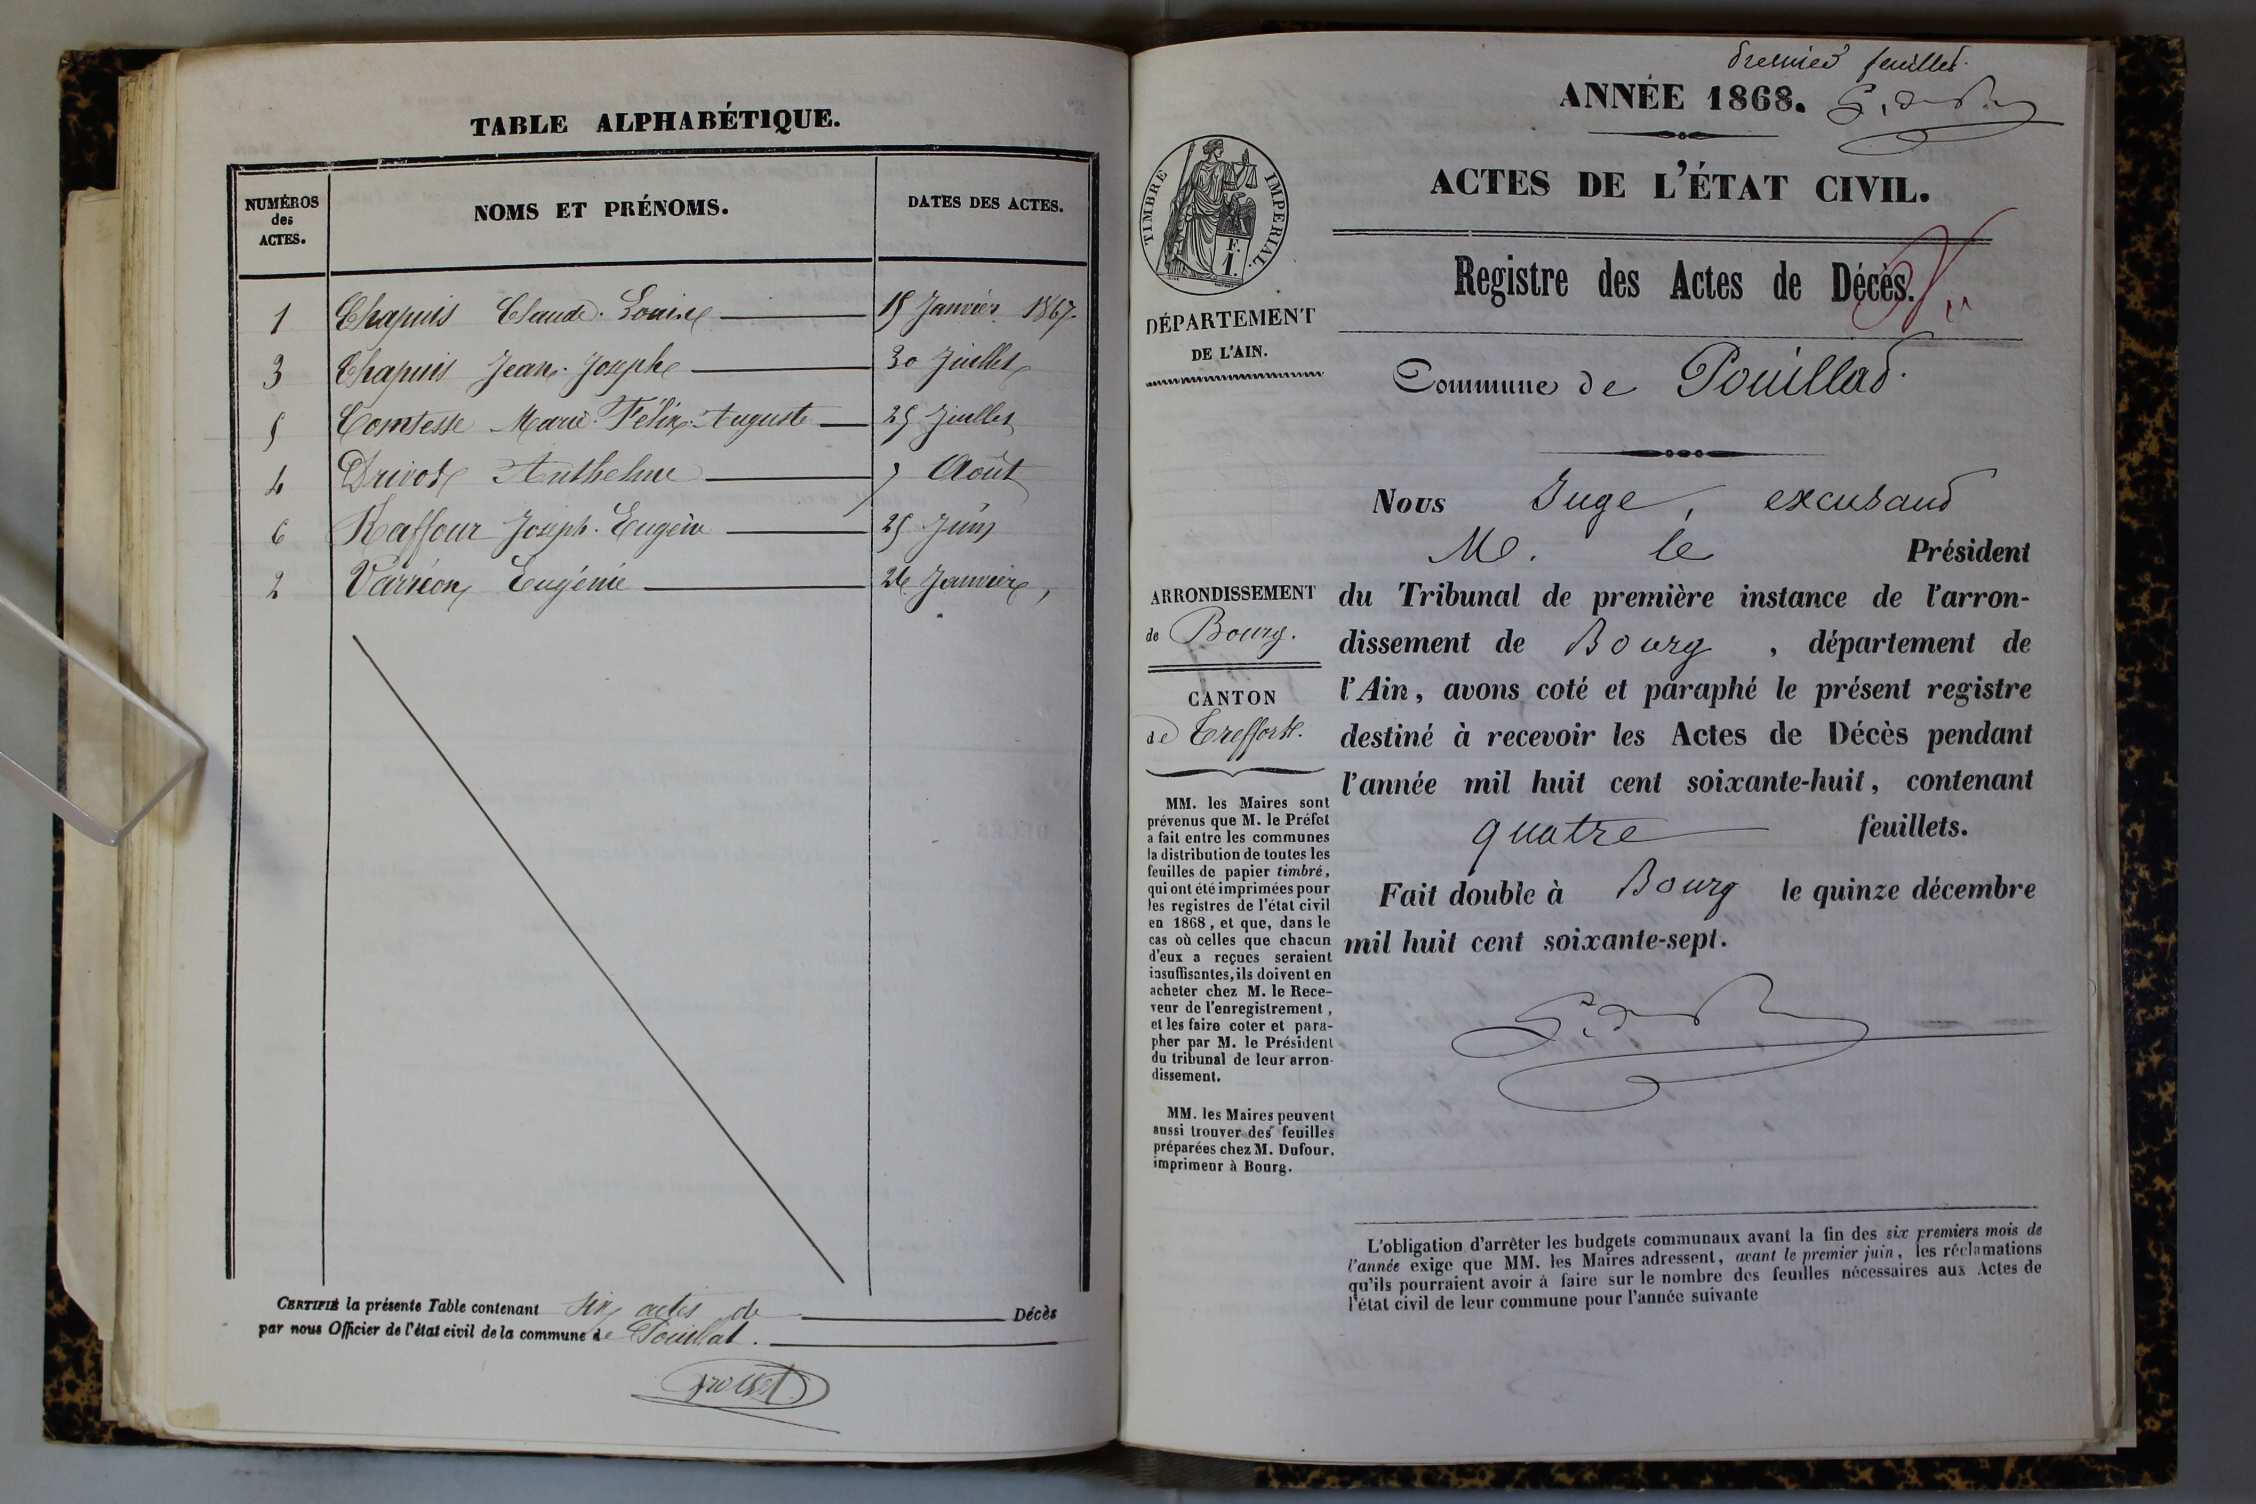 TABLE ALPHABÉTIQUE.
NUMÉROS des ACTES.
NOMS ET PRÉNOMS.
DATES DES ACTES.
1 Chapuis Claude Louise 15 Janvier 1867.
3 Chapuis Jean Joseph 30 Juillet
5 Comtesse Marie Félix Auguste 25 Juillet
4 Drivot Anthelme 7 Août
6 Raffour Joseph Eugène 25 Juin
2 Varréon Eugénie 26 Janvier
CERTIFIÉ la présente Table contenant six actes de Décès
par nous Officier de l'état civil de la commune de Pouillat.
premier feuillet.
ANNÉE 1868.
ACTES DE L'ÉTAT CIVIL.
TIMBRE IMPÉRIAL.
F.
1.
Registre des Actes de Décès.
Vu
DÉPARTEMENT
DE L'AIN.
Commune de Pouillat.
Nous Juge, excusant
M. le Président
du Tribunal de première instance de l'arron-
dissement de Bourg, département de
l'Ain, avons coté et paraphé le présent registre
destiné à recevoir les Actes de Décès pendant
l'année mil huit cent soixante-huit, contenant
quatre feuillets.
Fait double à Bourg le quinze décembre
mil huit cent soixante-sept.
ARRONDISSEMENT
de Bourg.
CANTON
de Treffort.
MM. les Maires sont
prévenus que M. le Préfet
a fait entre les communes
la distribution de toutes les
feuilles de papier timbré,
qui ont été imprimées pour
les registres de l'état civil
en 1868, et que, dans le
cas où celles que chacun
d'eux a reçues seraient
insuffisantes, ils doivent en
acheter chez M. le Rece-
veur de l'enregistrement,
et les faire coter et para-
pher par M. le Président
du tribunal de leur arron-
dissement.
MM. les Maires peuvent
aussi trouver des feuilles
préparées chez M. Dufour,
imprimeur à Bourg.
L'obligation d'arrêter les budgets communaux avant la fin des six premiers mois de
l'année exige que MM. les Maires adressent, avant le premier juin, les réclamations
qu'ils pourraient avoir à faire sur le nombre des feuilles nécessaires aux Actes de
l'état civil de leur commune pour l'année suivante